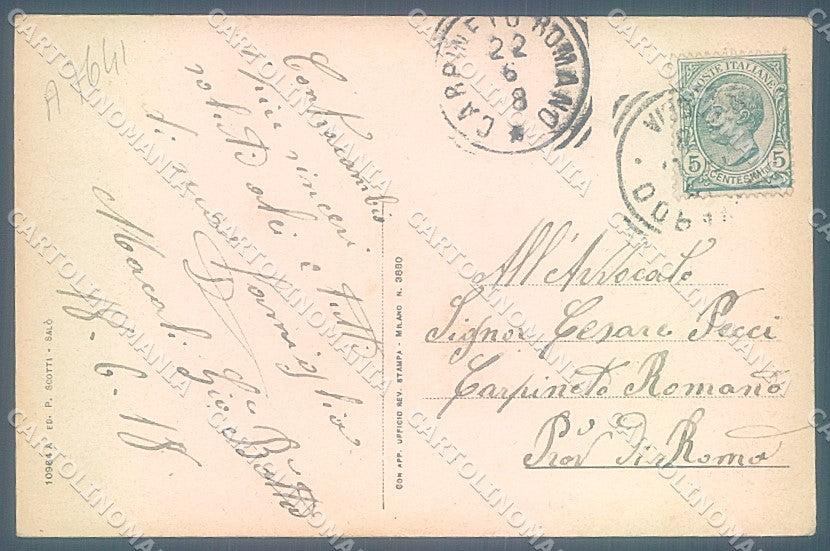 A 1641
Contracambio
più sinceri
voti Dalei e tutti
di sua Famiglia
Macali Gio Batta
18-6-18
CARPINETO ROMANO
22
6
8
POSTE ITALIANE
5
5
CENTESIMI
All'Avvocato
Signor Cesare Pecci
Carpineto Romano
Prov di Roma
10964 A ED. P. SCOTTI - SALÒ
CON APP. UFFICIO REV. STAMPA - MILANO N. 3880
CARTOLINOMANIA